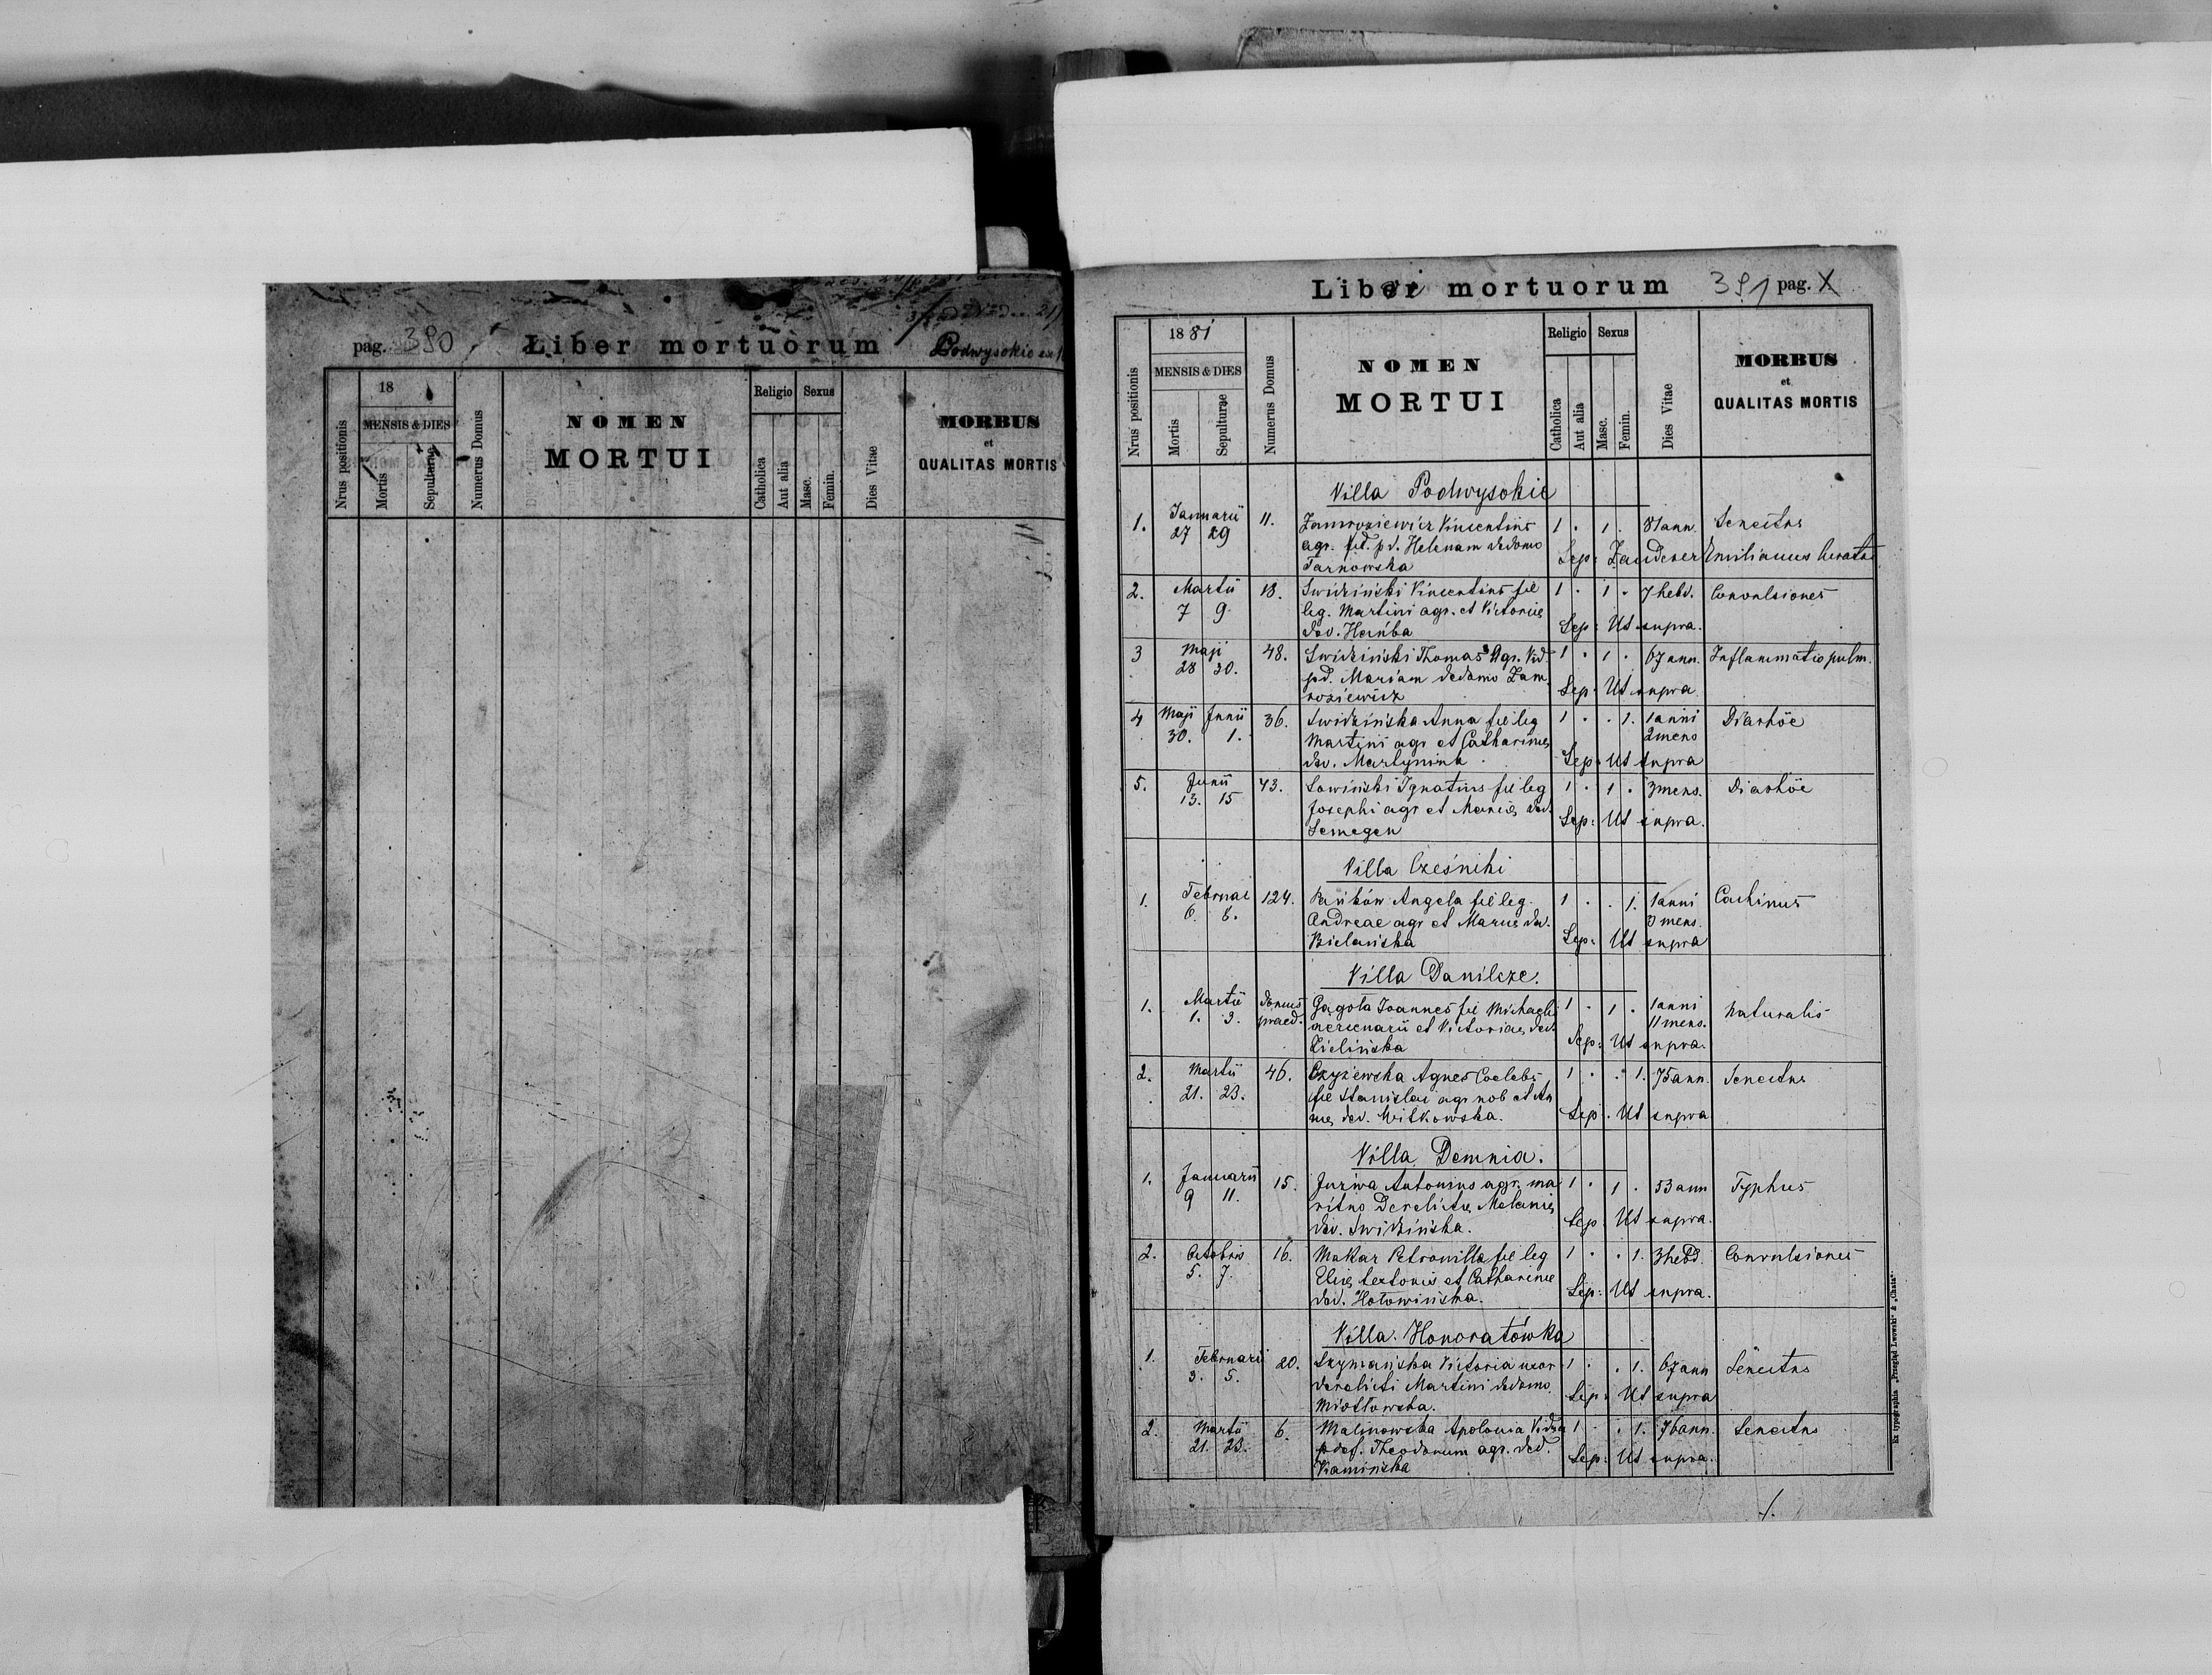 pag. 390 Liber mortuorum Podwysokie
Nrus positionis
18
MENSIS & DIES
Mortis
Sepulturae
Numerus Domus
NOMEN
MORTUI
Religio
Catholica
Aut alia
Sexus
Masc.
Femin.
Dies Vitae
MORBUS
et
QUALITAS MORTIS
Liber mortuorum 391 pag. X
Nrus positionis
1881
MENSIS & DIES
Mortis
Sepulturae
Numerus Domus
NOMEN
MORTUI
Religio
Catholica
Aut alia
Sexus
Masc.
Femin.
Dies Vitae
MORBUS
et
QUALITAS MORTIS
Villa Podwysokie
1. Januarii 11. Zamroziewicz Vincentius 1 . 1 . 81 ann. Senectus
27 29 agr. vid. pd. Helenam dedomo
Tarnowska Sep: Zauderer Emilianus
2. Martii 18. Swidziński Vincentius fil 1 . 1 . 7 hebd. Convulsiones
7 9. leg. Martini agr. et Victoriae
ded. Hańba Sep: Ut supra.
3 Maji 48. Swidziński Thomas Agr. Vid. 1 . 1 . 67 ann. Inflammatio pulm.
28 30. pd. Mariam dedomo Zam
roziewicz Sep: Ut supra
4 Maji Junii 36. Swidzińska Anna fil leg 1 . . 1. 1 anni Diarhöe
30. 1. Martini agr et Catharinae 2 mens
ded. Martynink Sep: Ut supra
5. Junii 43. Sawiński Ignatius fil leg 1 . 1 . 3 mens. Diarhöe
13. 15 Josephi agr et Mariae ded.
Semegen Sep: Ut supra.
Villa Cześniki
1. Februar 124. Pańków Angela fil leg. 1 . . 1. 1 anni
6. 8. Andreae agr et Mariae ded. 3 mens.
Bielańska Sep: Ut supra
Villa Danilcze.
1. Martii Domus Gągola Joannes fil Michaeli 1 . 1 . 1 anni Naturalis
1. 3. praed. mercenarii et Victoriae ded. 11 mens.
Zielińska Sep: Ut supra.
2. Martii 46. Czyżewska Agnes Coelebs 1 . . 1. 75 ann. Senectus
21. 23. fil Stanislai agr nob et An
nae ded. Witkowska. Sep: Ut supra
Villa Demnia.
1. Januarii 15. Juzwa Antonius agr. ma 1 . 1 . 53 ann Typhus
9 11. ritus Derelictae Melaniae
ded. Swidzińska. Sep: Ut supra.
2. Octobris 16. Makar Petronilla fil leg 1 . . 1. 3 hebd. Convulsiones
5. 7. Eliae textoris et Catharinae
ded. Hołowińska. Sep: Ut supra.
Villa. Honoratówka
1. Februarii 20. Szymańska Victoria uxor 1 . . 1. 67 ann Senectus
3. 5. derelicti Martini dedomo
Miotłowska. Sep: Ut supra
2. Martii 6. Malinowska Apolonia Vidua 1 . . 1. 76 ann. Senectus
21. 23. pdef. Theodorum agr. ded.
Kamińska Sep: Ut supra.
Ex typographia „Przegląd Lwowski“ & „Chata“.